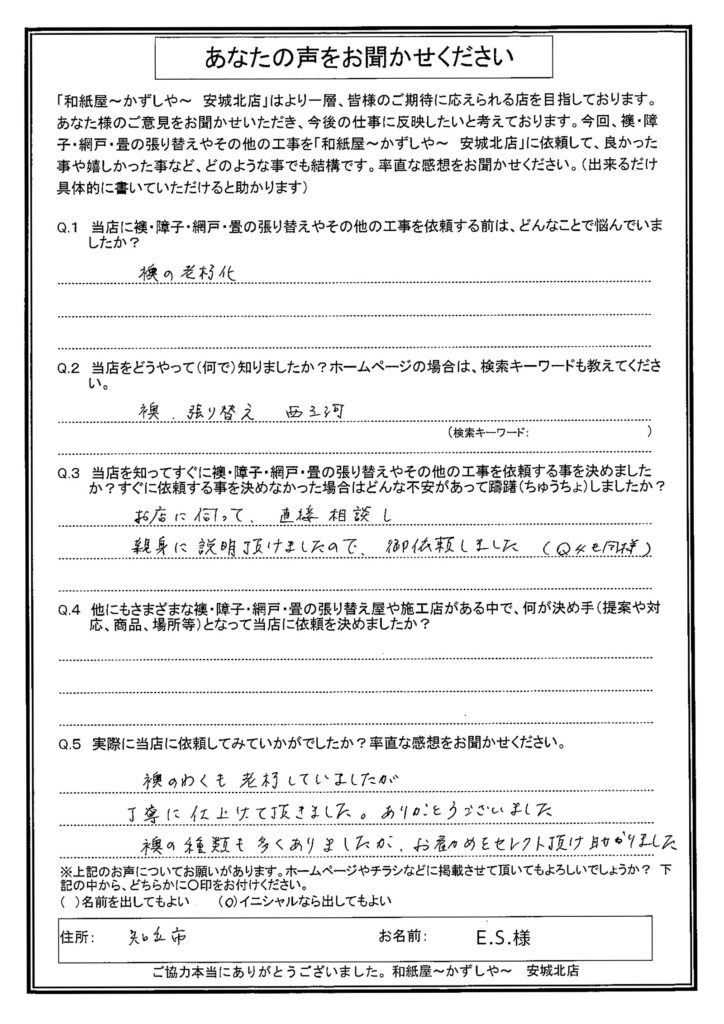 あなたの声をお聞かせください
「和紙屋～かずしや～　安城北店」はより一層、皆様のご期待に応えられる店を目指しております。
あなた様のご意見をお聞かせいただき、今後の仕事に反映したいと考えております。今回、襖・障
子・網戸・畳の張り替えやその他の工事を「和紙屋～かずしや～　安城北店」に依頼して、良かった
事や嬉しかった事など、どのような事でも結構です。率直な感想をお聞かせください。（出来るだけ
具体的に書いていただけると助かります）
Q.1　当店に襖・障子・網戸・畳の張り替えやその他の工事を依頼する前は、どんなことで悩んでいま
したか？
襖の老朽化
Q.2　当店をどうやって（何で）知りましたか？ホームページの場合は、検索キーワードも教えてくださ
い。
襖、張り替え　西三河
（検索キーワード：　）
Q.3　当店を知ってすぐに襖・障子・網戸・畳の張り替えやその他の工事を依頼する事を決めました
か？すぐに依頼する事を決めなかった場合はどんな不安があって躊躇（ちゅうちょ）しましたか？
お店に伺って、直接相談し
親身に説明頂けましたので、御依頼しました（Q4も同様）
Q.4　他にもさまざまな襖・障子・網戸・畳の張り替え屋や施工店がある中で、何が決め手（提案や対
応、商品、場所等）となって当店に依頼を決めましたか？
Q.5　実際に当店に依頼してみていかがでしたか？率直な感想をお聞かせください。
襖のわくも老朽していましたが
丁寧に仕上げて頂きました。ありがとうございました
襖の種類も多くありましたが、お薦めをセレクト頂け助かりました
※上記のお声についてお願いがあります。ホームページやチラシなどに掲載させて頂いてもよろしいでしょうか？　下
記の中から、どちらかに〇印をお付けください。
（　）名前を出してもよい　（〇）イニシャルなら出してもよい
住所：　知立市　お名前：　E.S.様
ご協力本当にありがとうございました。和紙屋～かずしや～　安城北店